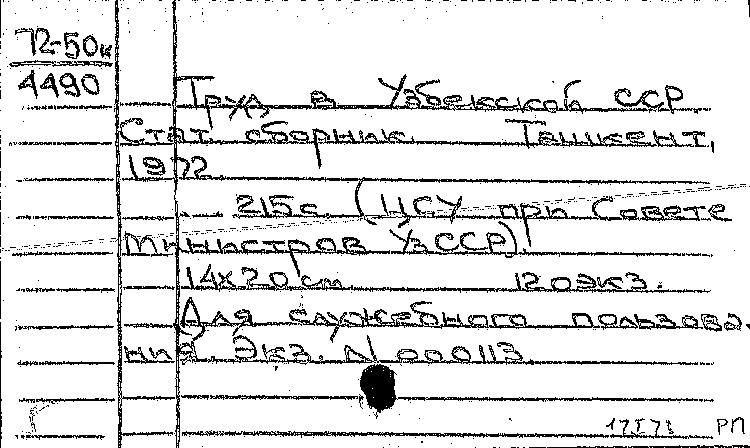 72-50к
4490
Труд в Узбекской ССР
Стат. сборник. Ташкент,
1972.
215с. (ЦСУ при Совете
Министров УзССР).
14х20 см. 120экз.
Для служебного пользова-
ния. Экз. N 000113.
РП